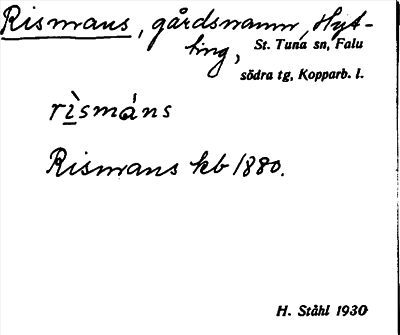 Rismans, gårdsnamn, Hyt-
ting, St. Tuna sn, Falu
södra tg, Kopparb. l.
rìsmáns
Rismans kb 1880.
H. Ståhl 1930